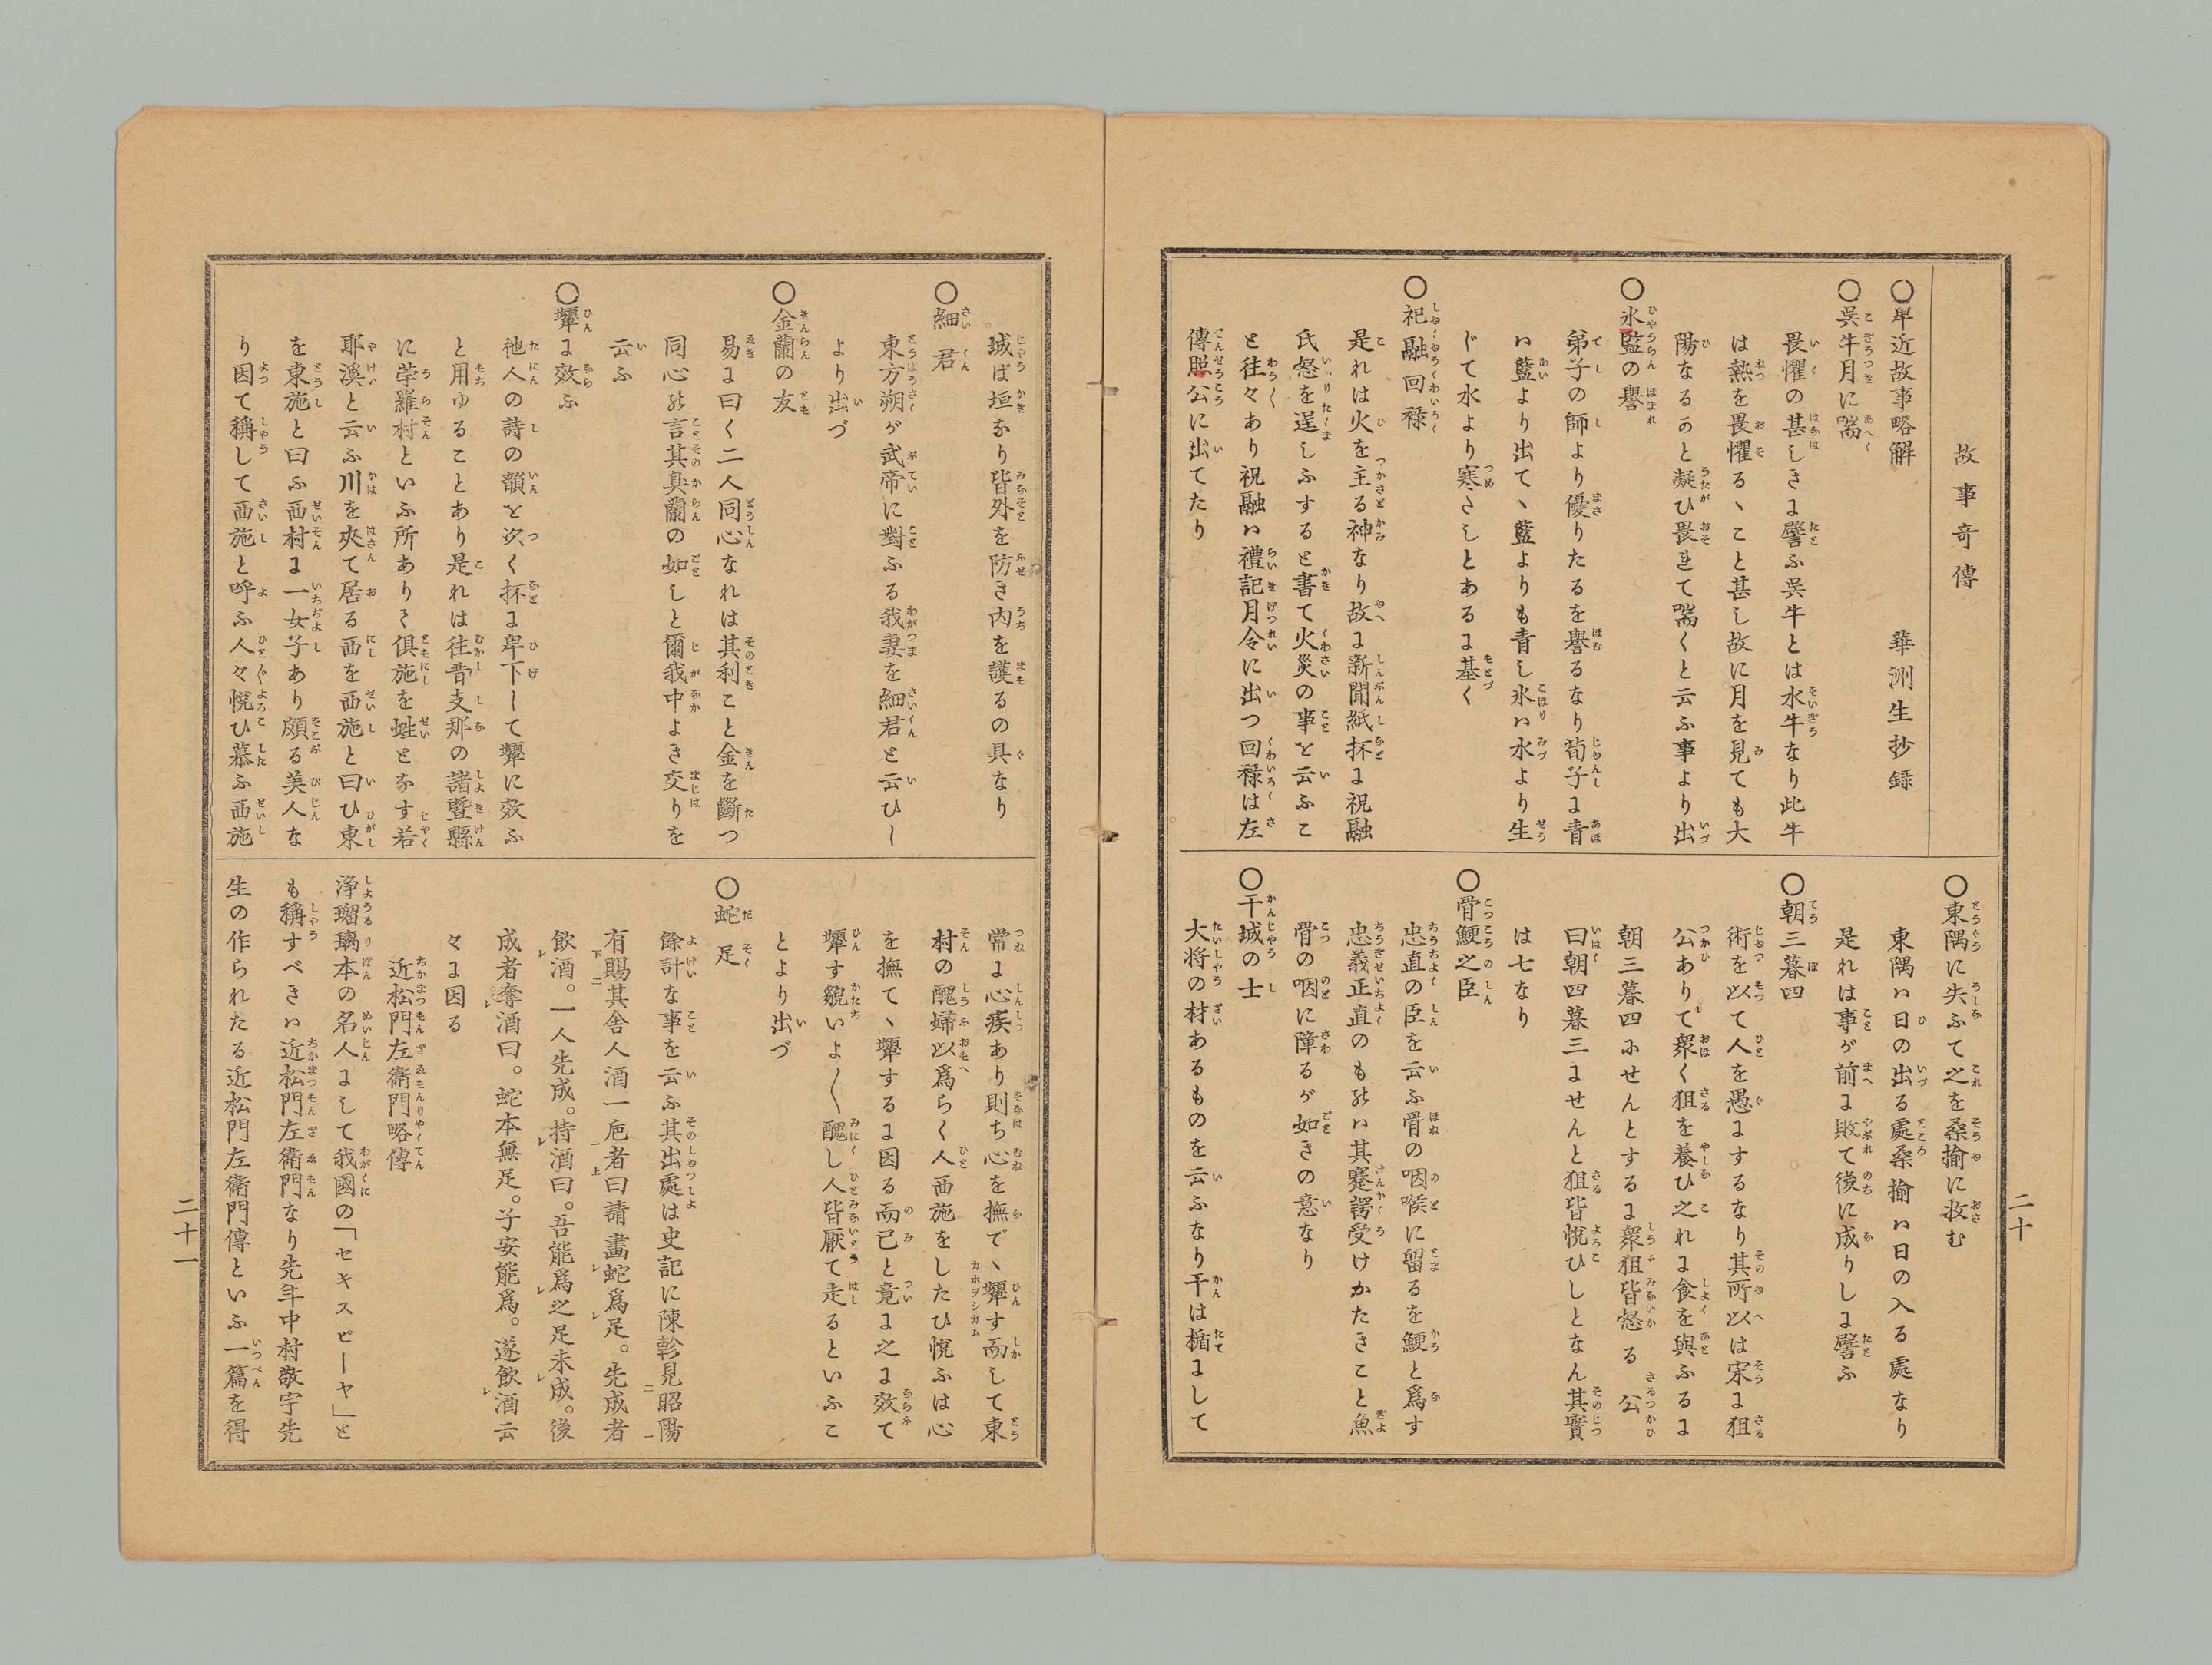 故事奇傳
○卑近故事略解　華洲生抄録
○呉牛月に喘
畏懼の甚しきに譬ふ呉牛とは水牛なり此牛
は熱を畏懼るヽこと甚し故に月を見ても大
陽なるかと凝ひ畏れて喘くと云ふ事より出
○氷監の譽
弟子の師より優りたるを譽るなり荀子に青
ハ藍より出てヽ藍よりも青し氷ハ水より生
じて水より寒さしとあるに基く
○祀融回祿
是れは火を主る神なり故に新聞紙抔に祝融
氏怒を逞しふすると書て火災の事と云ふこ
と往々あり祝融ハ禮記月令に出つ回祿は左
傳照公に出てたり
○東隅に失ふて之を桑揄に收む
東隅ハ日の出る處桑揄ハ日の入る處なり
是れは事が前に敗て後に成りしに譬ふ
○朝三暮四
術を以て人を愚にするなり其所以は宋に狙
公ありて衆く狙を養ひ之れに食を與ふるに
朝三暮四にせんとするに衆狙皆怒る。公
曰朝四暮三にせんと狙皆悅ひしとなん其實
は七なり
○骨鯁之臣
忠直の臣を云ふ骨の咽喉に留るを鯁と爲す
忠義正直のものハ其蹇諤受けかたきこと魚
骨の咽に障るが如きの意なり
○干城の士
大将の材あるものを云ふなり干は楯にして
二十
城ば垣なり皆外を防き內を護るの具なり
○細君
東方朔が武帝に對ふる我妻を細君と云ひし
より出づ
○金蘭の友
易に曰く二人同心なれは其利こと金を斷つ
同心の言其臭蘭の如しと爾我中よき交りを
云ふ
○顰に效ふ
他人の詩の韻と次く抔に卑下して顰に效ふ
と用ゆることあり是れは往昔支那の諸曁縣
に苧羅村といふ所あり俱施を姓となす若
耶溪と云ふ川を夾て居る西を西施と曰ひ東
を東施と曰ふ西村に一女子あり頗る美人な
り因て稱して西施と呼ふ人々悅ひ慕ふ西施
常に心疾あり則ち心を撫でヽ顰す而して東
村の醜婦以爲らく人西施をしたひ悅ふは心
を撫てヽ顰するに因る而已と竟に之に效て
顰す貌いよ〱醜し人皆厭て走るといふこ
とより出づ
○蛇足
餘計な事を云ふ其出處は史記に陳軫見昭陽
有賜其舍人酒一巵者曰請畫蛇爲足。先成者
飮酒。一人先成。持酒曰。吾能爲之足未成。後
成者奪酒曰。蛇本無足。子安能爲。遂飮酒云
々に因る
近松門左衛門略傳
浄瑠璃本の名人にして我國の「セキスピーヤ」と
も稱すべきハ近松門左衛門なり先年中村敬宇先
生の作られたる近松門左衛門傳といふ一篇を得
二十一